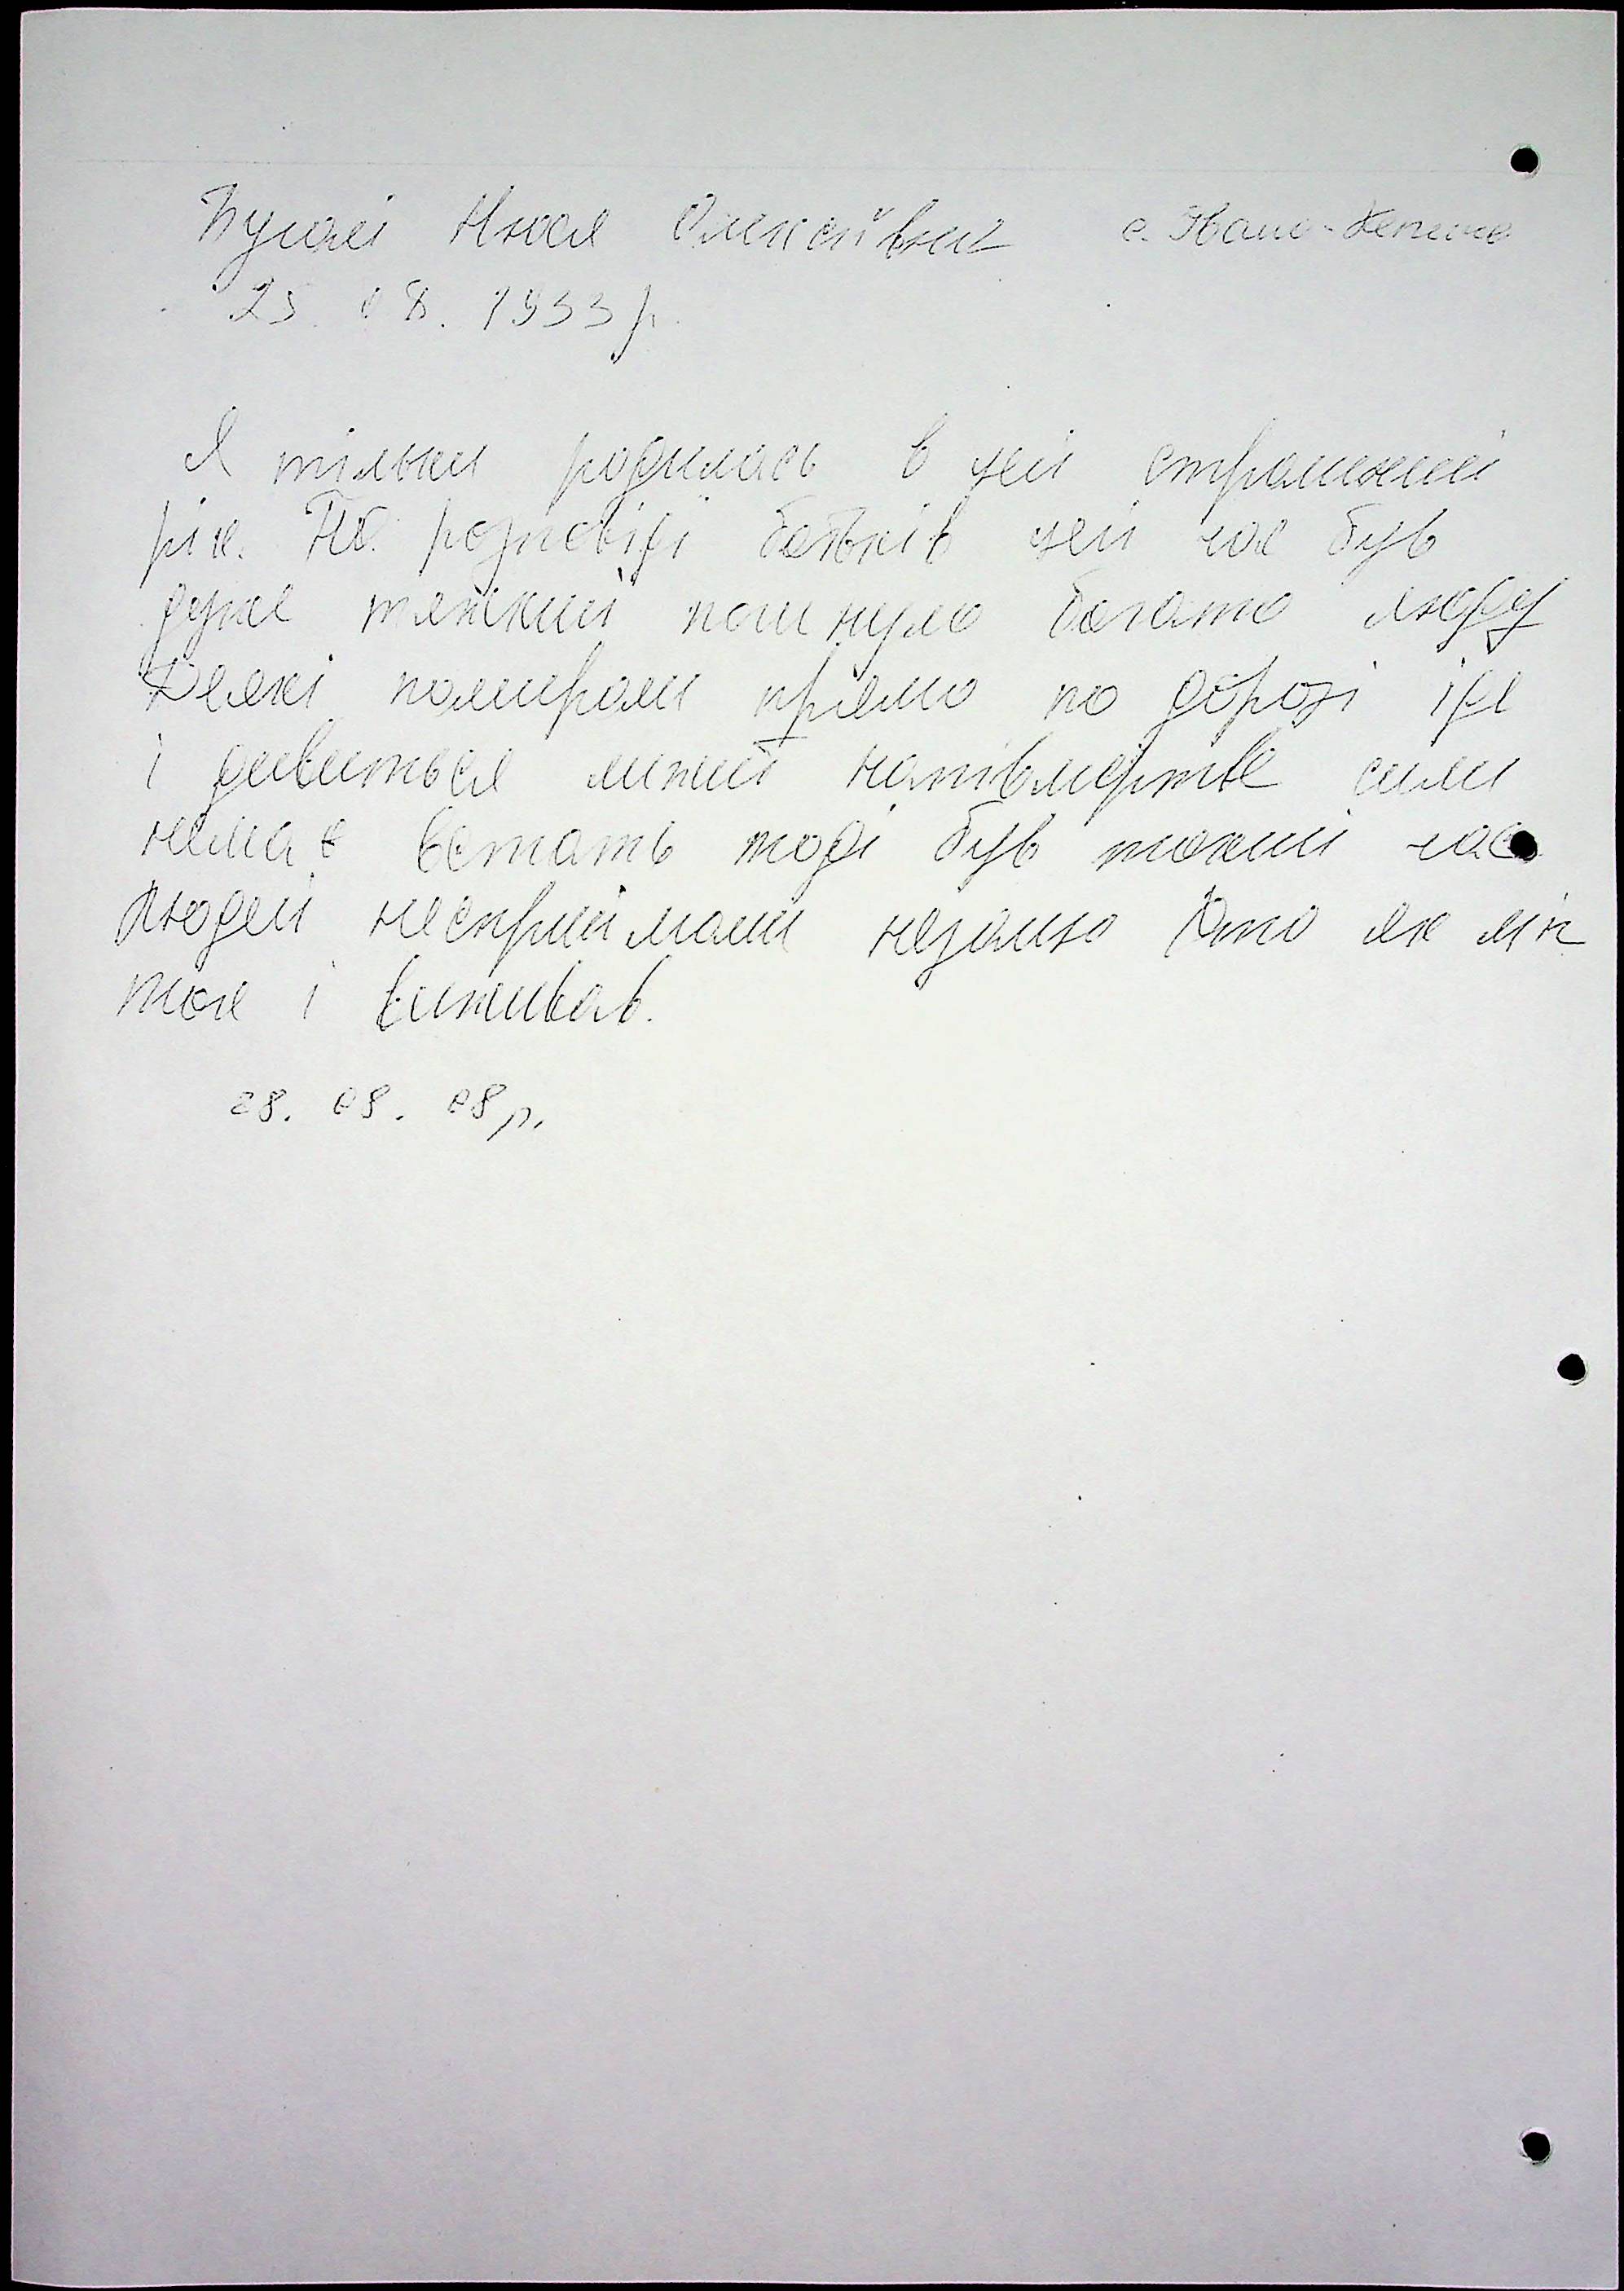 Олексіївна с. Івано-
25. 08. 1933 р.
Я тільки родилась в цей страшений
рік. По розповіді батьків цей час був
дуже тяжкий погинуло багато люду
Деякі помирали прямо по дорозі іде
і дивиться лижит напівмертве сили
нема є встать тоді був такий час
Людей несприймали незащо Хто як міг
так і виживав.
28. 08. 08 р.